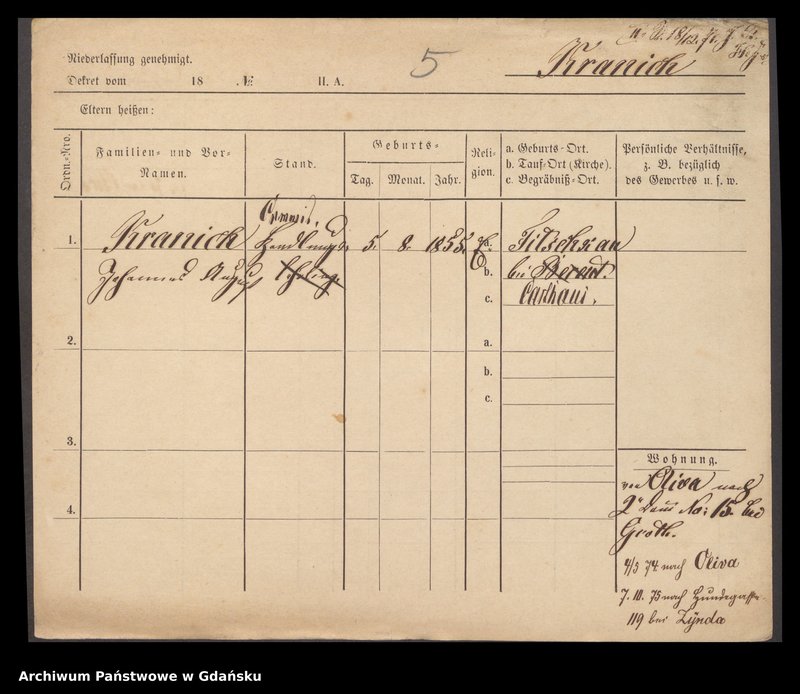 Niederlassung genehmigt.
Dekret vom 18 . № II. A.
5
Kranich
Eltern heißen:
Ordn.=Nro.
Familien= und Vor=
Namen.
Stand.
Geburts=
Tag. Monat. Jahr.
Reli=
gion.
a. Geburts=Ort.
b. Tauf=Ort (Kirche).
c. Begräbniß=Ort.
Persönliche Verhältnisse,
z. B. bezüglich
des Gewerbes u. s. w.
Commis.
1. Kranich Handlungs 5. 8. 1855. a.
Johannes August Lehrling b. bei Berent.
c. Carthaus.
2. a.
b.
c.
3.
4.
Wohnung.
von Oliva nach
2t Damm No: 15. bei
Groth.
4/5 74 nach Oliva
7. 10. 75 nach Hundegasse
119 bei Zynda
Archiwum Państwowe w Gdańsku